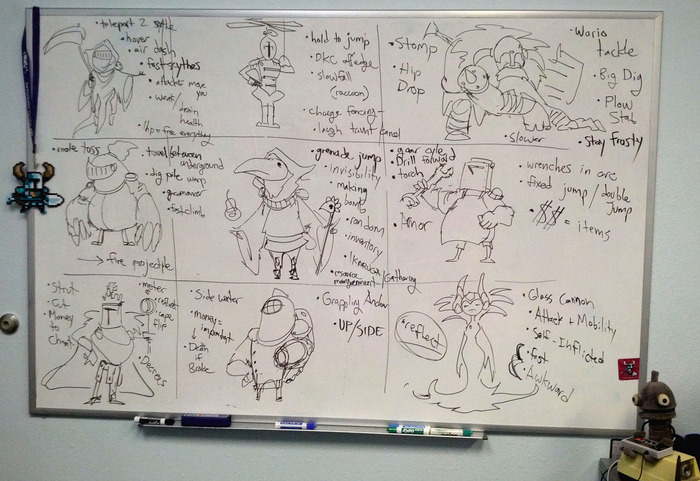 • teleport 2 scythe
• hover
• air dash
• fast scythes
• attacks move you
• weak/
drain
health
Up = free everything
• hold to jump
• DKC
• slowfall
(raccoon)
• charge fencing
• laugh taunt
• Stomp
• Hip
Drop
• Wario
tackle
• Big Dig
• Plow
Stab
• Slower
• Stay frosty
• mole toss
• travel between
underground
• dig pile warp
• fast climb
→ fire projectile
• grenade jump
• invisibility
• making
bombs
• random
• inventory
• resource
management/Gathering
• gear cycle
• Drill forward
• torch
• Armor
• wrenches in arc
• fixed jump/double
Jump
• $$ = items
• Strut
• Cut
• Money
to
Cheat
• meter
• reflect
• cape
flip
• Decrees
• Side water
• money =
important
↓
• Death
if
Broke
• Grappling Anchor
• UP/SIDE
• reflect
• Glass Cannon
• Attack + Mobility
• Self-Inflicted
• Fast
• Awkward